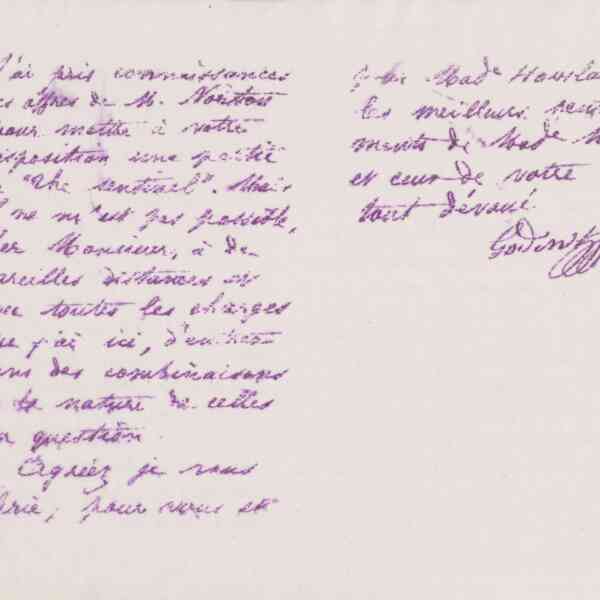 J'ai pris connaissances
des offres de M. Norton
pour mettre à votre
disposition une partie
de "The Sentinel". Mais
il ne m'est pas possible,
cher Monsieur, à de
pareilles distances et
avec toutes les charges
que j'ai ici, d'entrer
dans des combinaisons
de la nature de celles
en question.
Agréez je vous
prie, pour vous et
les meilleurs senti
ments de Made
et ceux de votre
tout dévoué
Godin